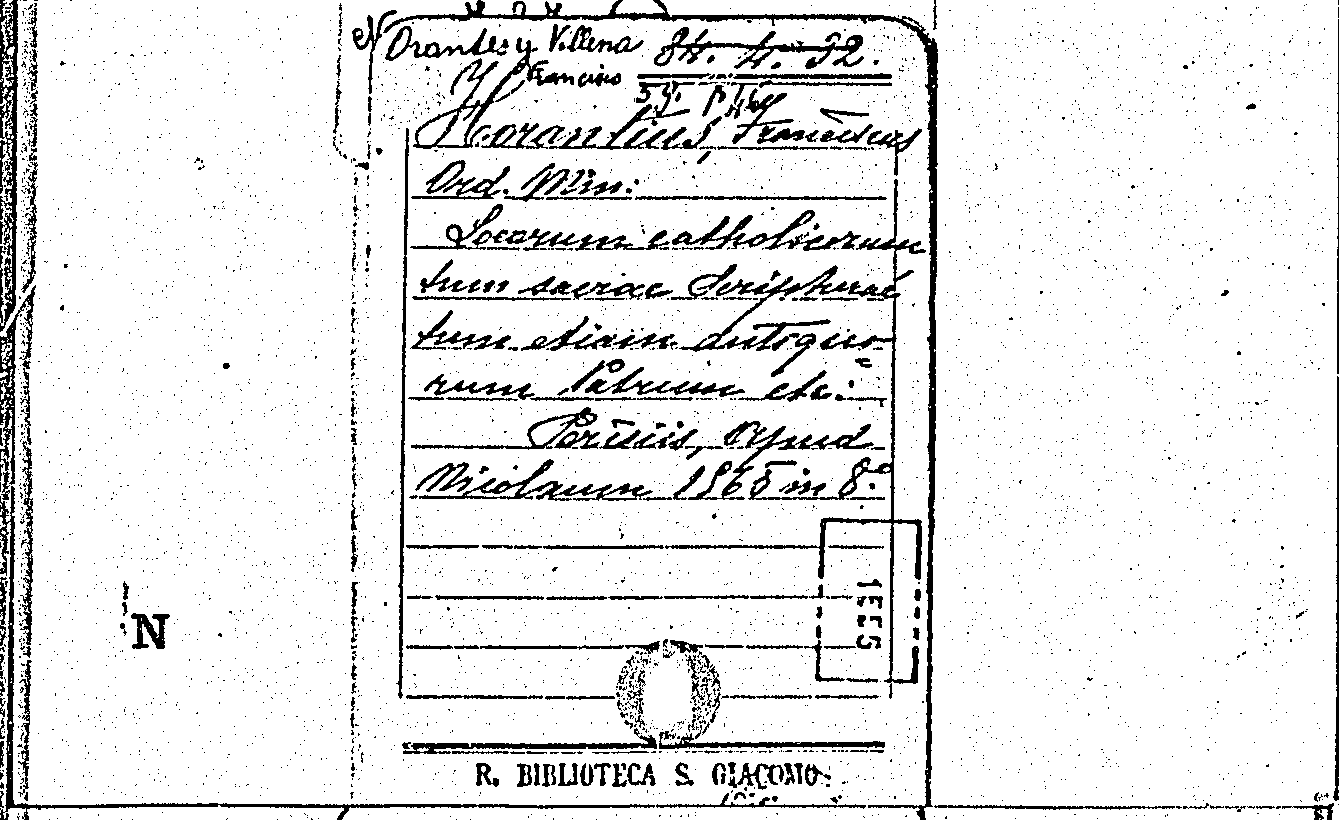 Orantes y Villena 84. 4. 32.
Francisco
Horantius, Franciscus
Ord. Min:
Locorum catholicorum
tum sacrae Scripturae
tum etiam antiquo=
rum Patrum etc:
Parisiis, Apud
Nicolaum 1565 in 8.°
N
R. BIBLIOTECA S. GIACOMO